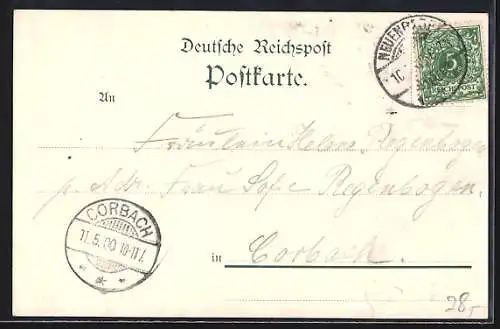 Deutsche Reichspost
Postkarte.
5
REICHSPOST
An
Fräulein Helene Regenbogen
p. Adr. Frau Sofie Regenbogen,
CORBACH
11.5.00 10-11V.
in Corbach.
28,-